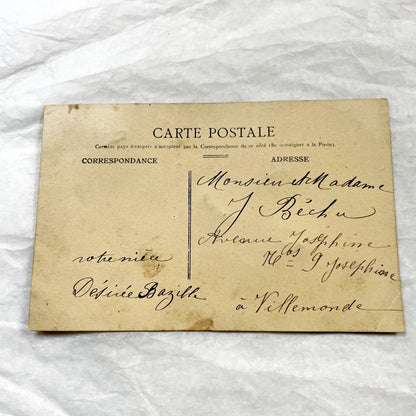 CARTE POSTALE
Certains pays étrangers n'acceptent pas la Correspondance de ce côté (Se renseigner à la Poste).
CORRESPONDANCE
ADRESSE
Monsieur et Madame
J Béchu
Avenue Joséphine
9 Joséphine
à Villemonde
votre nièce
Désirée Bazille